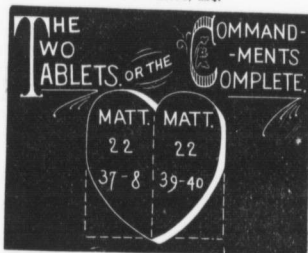 THE TWO TABLETS. OR THE COMMAND-
-MENTS COMPLETE.
MATT. MATT.
22 22
37-8 39-40